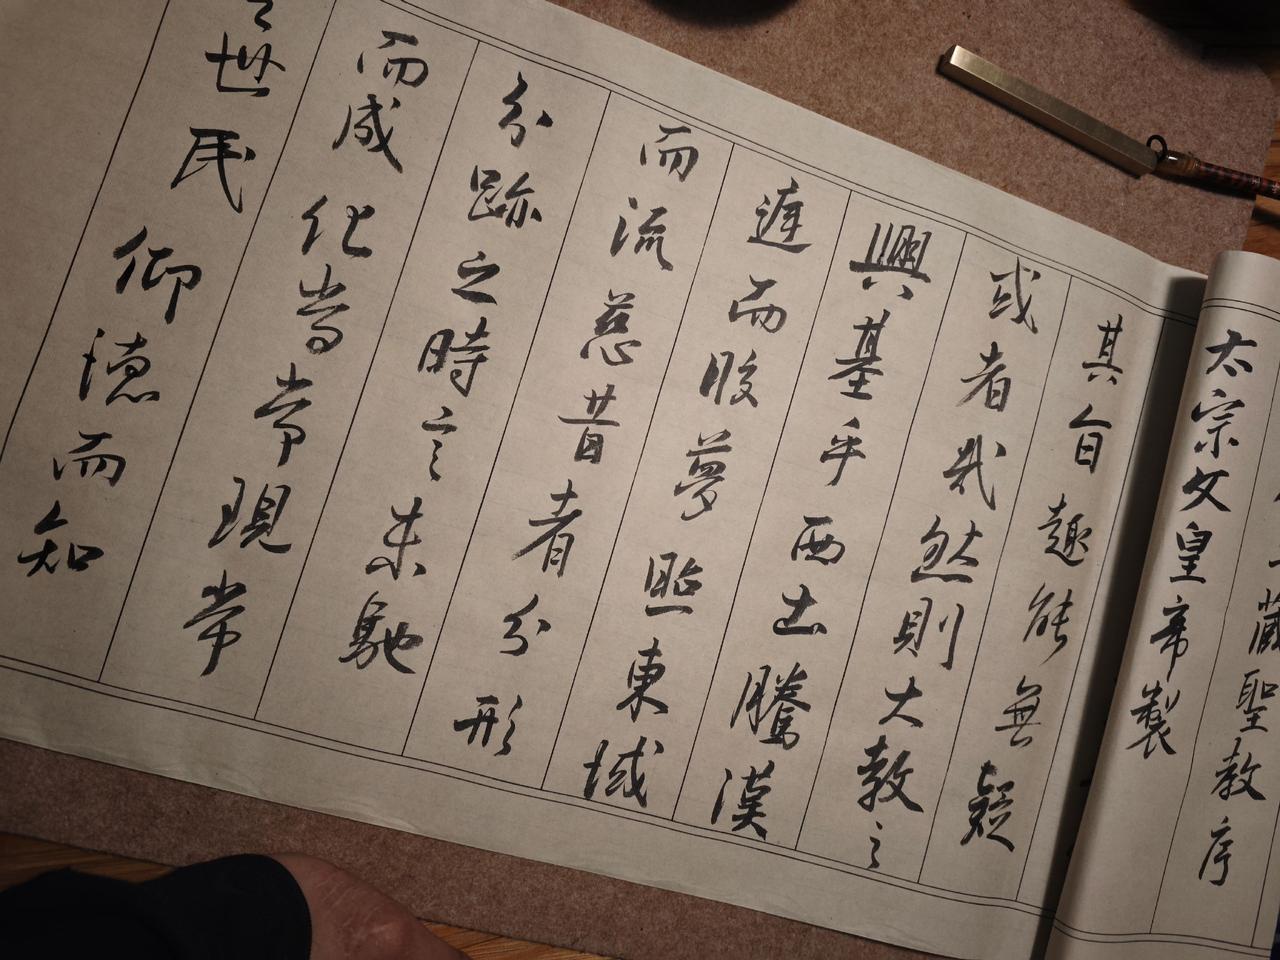 藏聖教序
太宗文皇帝製
其旨趣能無疑
或者哉然則大教之
興基乎西土騰漢
庭而皎夢照東域
而流慈昔者分形
分跡之時言未馳
而成化當常現常
之世民仰德而知